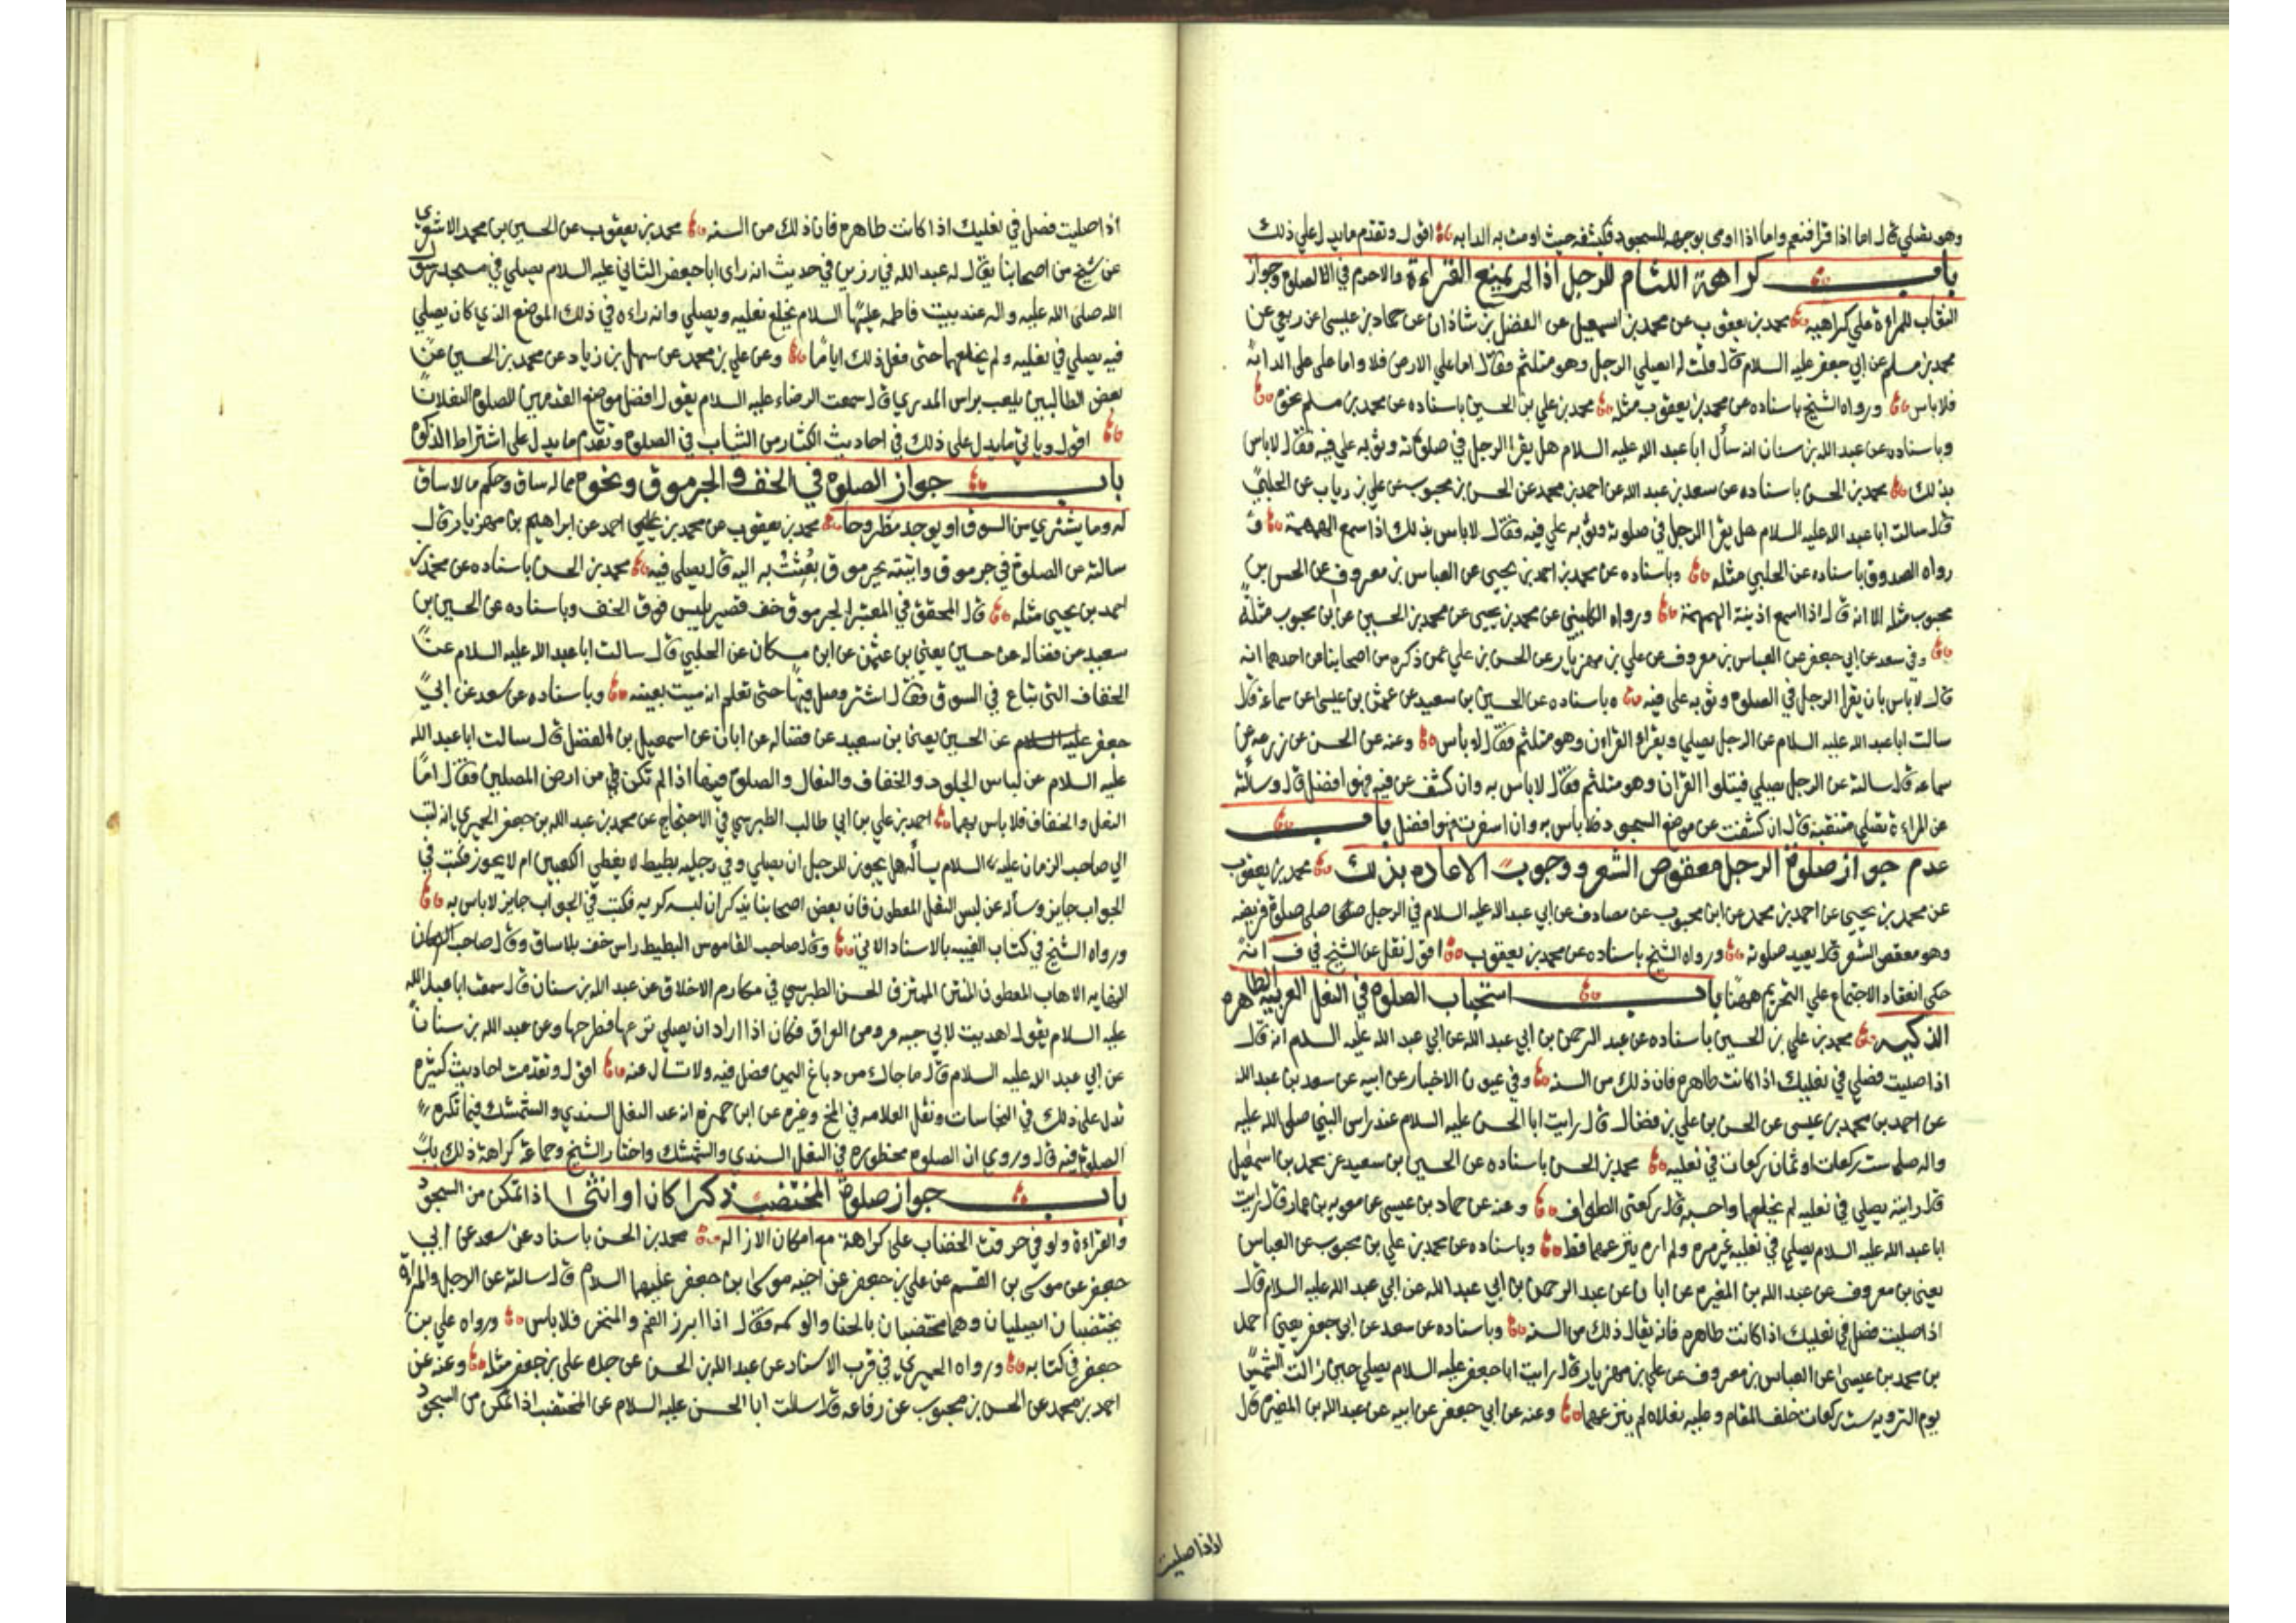 وهو يصلي قال اما اذا قرا فنعم واما اذا اومى بوجهه للسجود فليكشفه حيث اومت به الدابه اقول وتقدم ما يدل على ذلك
باب كراهة اللثام للرجل اذا لم يمنع القراءة والا حرم في الصلوة وجواز
النقاب للمراءة على كراهيه محمد بن يعقوب عن محمد بن اسمعيل عن الفضل بن شاذان عن حماد بن عيسى عن ربعي عن
محمد بن مسلم عن ابي جعفر عليه السلام قال قلت له ايصلي الرجل وهو متلثم فقال اما على الارض فلا واما على الدابة
فلا باس ورواه الشيخ باسناده عن محمد بن يعقوب مثله محمد بن علي بن الحسين باسناده عن محمد بن مسلم نحوه
وباسناده عن عبد الله بن سنان انه سأل ابا عبد الله عليه السلام هل يقرا الرجل في صلوته وثوبه على فيه فقال لا باس
بذلك محمد بن الحسن باسناده عن سعد بن عبد الله عن احمد بن محمد عن الحسن بن محبوب عن علي بن رياب عن الحلبي
قال سالت ابا عبد الله عليه السلام هل يقرا الرجل في صلوته وثوبه على فيه فقال لا باس بذلك اذا سمع الهمهمة و
رواه الصدوق باسناده عن الحلبي مثله وباسناده عن محمد بن احمد بن يحيى عن العباس بن معروف عن الحسن بن
محبوب مثله الا انه قال اذا اسمع اذنيه الهمهمة ورواه الكليني عن محمد بن يحيى عن محمد بن الحسين عن ابن محبوب مثله
وفي سعد عن ابي جعفر عن العباس بن معروف عن علي بن مهزيار عن الحسن بن علي عمن ذكره من اصحابنا عن احدهما انه
قال لا باس بان يقرا الرجل في الصلوة وثوبه على فيه وباسناده عن الحسين بن سعيد عن عثمن بن عيسى عن سماعة قال
سالت ابا عبد الله عليه السلام عن الرجل يصلي ويقراء القران وهو متلثم فقال لا باس وعنه عن الحسن عن زرعه عن
سماعه قال سالته عن الرجل يصلي فيتلوا القران وهو متلثم فقال لا باس به وان كشف عن فيه فهو افضل قال وسألته
عن المراءة تصلي متنقبة قال ان كشفت عن موضع السجود فلا باس به وان اسفرت فهو افضل باب
عدم جواز صلوة الرجل معقوص الشعر ووجوب الاعاده بذلك محمد بن يعقوب
عن محمد بن يحيى عن احمد بن محمد عن ابن محبوب عن مصادف عن ابي عبد الله عليه السلام في الرجل صلى صلوة فريضه
وهو معقص الشعر قال يعيد صلوته ورواه الشيخ باسناده عن محمد بن يعقوب اقول نقل عن الشيخ في ف انه
حكى انعقاد الاجتماع على التحريم ههنا باب استحباب الصلوة في النعل العربيه الطاهره
الذكيه محمد بن علي بن الحسين باسناده عن عبد الرحمن بن ابي عبد الله عن ابي عبد الله عليه السلام انه قال
اذا صليت فصلي في نعليك اذا كانت طاهره فان ذلك من السنه وفي عيون الاخبار عن ابيه عن سعد بن عبد الله
عن احمد بن محمد بن عيسى عن الحسن بن علي بن فضال قال رايت ابا الحسن عليه السلام عند راس النبي صلى الله عليه
واله صلى ست ركعات او ثمان ركعات في نعليه محمد بن الحسن باسناده عن الحسين بن سعيد عن محمد بن اسمعيل
قال رايته يصلي في نعليه لم يخلعهما واحسبه قال ركعتي الطواف وعنه عن حماد بن عيسى عن معويه بن عمار قال رايت
ابا عبد الله عليه السلام يصلي في نعليه غير مره ولم اره ينزعهما قط وباسناده عن محمد بن علي بن محبوب عن العباس
يعني بن معروف عن عبد الله بن المغيره عن ابان عن عبد الرحمن بن ابي عبد الله عن ابي عبد الله عليه السلام قال
اذا صليت فصل في نعليك اذا كانت طاهره فانه يقال ذلك من السنه وباسناده عن سعد عن ابي جعفر يعني احمد
بن محمد بن عيسى عن العباس بن معروف عن علي بن مهزيار قال رايت ابا جعفر عليه السلام يصلي حين زالت الشمس
يوم الترويه ست ركعات خلف المقام وعليه نعلاه لم ينزعهما وعنه عن ابي جعفر عن ابيه عن عبد الله بن المغيرة قال
اذا صليت
اذا صليت فصل في نعليك اذا كانت طاهره فان ذلك من السنه محمد بن يعقوب عن الحسين بن محمد الاشعري
عن شيخ من اصحابنا يقال له عبد الله في رزين في حديث انه راى ابا جعفر الثاني عليه السلام يصلي في مسجد رسول
الله صلى الله عليه واله عند بيت فاطمه عليها السلام يخلع نعليه ويصلي وانه راءه في ذلك الموضع الذي كان يصلي
فيه يصلي في نعليه ولم يخلعهما حتى فعل ذلك اياما وعن علي بن محمد عن سهل بن زياد عن محمد بن الحسين عن
بعض الطالبين يلقب براس المدري قال سمعت الرضاء عليه السلام يقول افضل موضع القدمين للصلوة النعلان
اقول وياتي ما يدل على ذلك في احاديث الكثار من الثياب في الصلوة وتقدم ما يدل على اشتراط الذكوة
باب جواز الصلوة في الخف والجرموق ونحوه مما له ساق وحكم ما لا ساق
له وما يشترى من السوق او يوجد مطروحا محمد بن يعقوب عن محمد بن يحيى احمد عن ابراهيم بن مهزيار قال
سالته عن الصلوة في جرموق واتيته بجرموق بعثت به اليه قال يصلي فيه محمد بن الحسن باسناده عن محمد بن
احمد بن يحيى مثله قال المحقق في المعتبر الجرموق خف قصير يلبس فوق الخف وباسناده عن الحسين بن
سعيد عن فضاله عن حسين يعني بن عثمن عن ابن مسكان عن الحلبي قال سالت ابا عبد الله عليه السلام عن
الخفاف التي تباع في السوق فقال اشتر وصل فيها حتى تعلم انه ميت بعينه وباسناده عن سعد عن ابي
جعفر عليه السلام عن الحسين يعني بن سعيد عن فضاله عن ابان عن اسمعيل بن الفضل قال سالت ابا عبد الله
عليه السلام عن لباس الجلود والخفاف والنعال والصلوة فيها اذا لم تكن في من ارض المصلين فقال اما
النعل والخفاف فلا باس بهما احمد بن علي بن ابي طالب الطبرسي في الاحتجاج عن محمد بن عبد الله بن جعفر الحميري انه كتب
الى صاحب الزمان عليه السلام يسأله هل يجوز للرجل ان يصلي وفي رجليه بطيط لا يغطي الكعبين ام لا يجوز فكتب في
الجواب جايز وسأله عن لبس النعل المعطون فان بعض اصحابنا يذكر ان لبسه كريه فكتب في الجواب جايز لا باس به
ورواه الشيخ في كتاب الغيبه بالاسناد الاتي وقال صاحب القاموس البطيط راس خف بلا ساق وقال صاحب
النهايه الاهاب المعطون المنتن المتمزق الحسن الطبرسي في مكارم الاخلاق عن عبد الله بن سنان قال سمعت ابا عبد الله
عليه السلام يقول اهديت لابي جبه فرو من العراق فكان اذا اراد ان يصلي نزعها فطرحها وعن عبد الله بن سنان
عن ابي عبد الله عليه السلام قال ما جاك من دباغ اليمن فصل فيه ولا تسال عنه اقول وتقدمت احاديث كثيره
تدل على ذلك في النجاسات ونقل العلامه في المخ وغيره عن ابن حمزه انه عد النعل السندي والشمشك فيما تكره
الصلوة فيه قال وروي ان الصلوة محظوره في النعل السندي والشمشك واختار الشيخ وجماعة كراهة ذلك باب
باب جواز صلوة المختضب ذكرا كان او انثى اذا تمكن من السجود
والقراءة ولو في خرقت الخضاب على كراهة مع امكان الازاله محمد بن الحسن باسناد عن سعد عن ابي
جعفر عن موسى بن القسم عن علي بن جعفر عن اخيه موسى بن جعفر عليهما السلام قال سالته عن الرجل والمراة
يختضبان ايصليان وهما مختضبان بالحنا والوسمه فقال اذا ابرز الفم والمنخر فلا باس ورواه علي بن
جعفر في كتابه ورواه الحميري في قرب الاسناد عن عبد الله بن الحسن عن جده علي بن جعفر مثله وعنه عن
احمد بن محمد عن الحسن بن محبوب عن رفاعه قال سالت ابا الحسن عليه السلام عن المختضب اذا تمكن من السجود